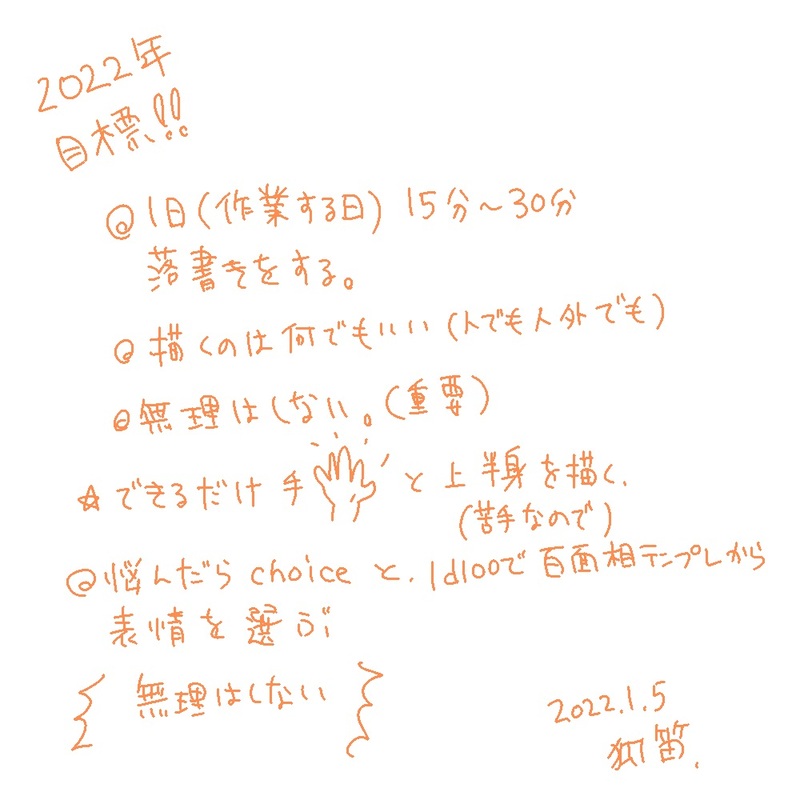 2022年
目標!!
◎1日(作業する日) 15分～30分
落書きをする。
◎描くのは何でもいい(人でも人外でも)
◎無理はしない。(重要)
☆できるだけ手と上半身を描く.
(苦手なので)
◎悩んだらchoiceと、1d100で百面相テンプレから
表情を選ぶ
無理はしない
2022.1.5
笛.